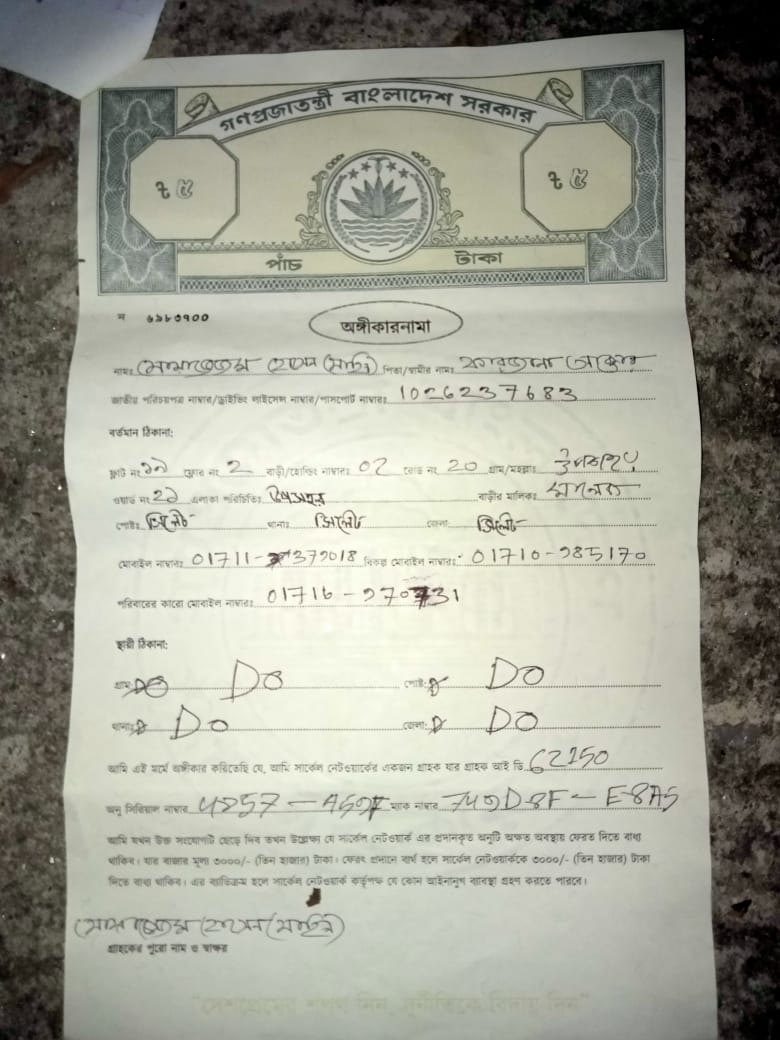 গণপ্রজাতন্ত্রী বাংলাদেশ সরকার
৳ ৫ ৳ ৫
পাঁচ টাকা
ন ৬৯৮৩৭০০
অঙ্গীকারনামা
নামঃ হোসেন পিতা/স্বামীর নামঃ ফারজানা আক্তার
জাতীয় পরিচয়পত্র নাম্বার/ড্রাইভিং লাইসেন্স নাম্বার/পাসপোর্ট নাম্বারঃ 1026237683
বর্তমান ঠিকানা:
ফ্লাট নং ফ্লোর নং 2 বাড়ী/হোল্ডিং নাম্বারঃ 02 রোড নং 20 গ্রাম/মহল্লাঃ
ওয়ার্ড নং এলাকা পরিচিতিঃ উপশহর বাড়ীর মালিকঃ
পোষ্টঃ সিলেট থানাঃ সিলেট জেলাঃ সিলেট
মোবাইল নাম্বারঃ 01711-379018 বিকল্প মোবাইল নাম্বারঃ 01710-985170
পরিবারের কারো মোবাইল নাম্বারঃ 01716-
স্থায়ী ঠিকানা:
গ্রামঃ DO পোষ্ট: DO
থানাঃ DO জেলা: DO
আমি এই মর্মে অঙ্গীকার করিতেছি যে, আমি সার্কেল নেটওয়ার্কের একজন গ্রাহক যার গ্রাহক আই ডি 62150
অনু সিরিয়াল নাম্বার ম্যাক নাম্বার
আমি যখন উক্ত সংযোগটি ছেড়ে দিব তখন উল্লেক্ষা যে সার্কেল নেটওয়ার্ক এর প্রদানকৃত অনুটি অক্ষত অবস্থায় ফেরত দিতে বাধ্য
থাকিব। যার বাজার মূল্য ৩০০০/- (তিন হাজার) টাকা। ফেরৎ প্রদানে ব্যর্থ হলে সার্কেল নেটওয়ার্ককে ৩০০০/- (তিন হাজার) টাকা
দিতে বাধ্য থাকিব। এর ব্যতিক্রম হলে সার্কেল নেটওয়ার্ক কর্তৃপক্ষ যে কোন আইনানুগ ব্যাবস্থা গ্রহণ করতে পারবে।
হোসেন
গ্রাহকের পুরো নাম ও স্বাক্ষর
"দেশপ্রেমের শপথ নিন, দুর্নীতিকে বিদায় দিন"